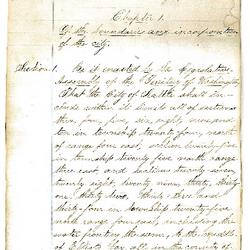 Chapter 1.
Of the boundaries and incorporation
of the city.
Section 1. Be it enacted by the Legislative
Assembly of the Territory of Washington
That the City of Seattle shall in-
clude within its limits all of sections
four, five, six, eight, nine and
ten in township twenty four, north
of range four east, section twenty-five
in township twenty five north range
three east and sections twenty seven
twenty eight, twenty nine, thirty, thirty
one, thirty two, thirty-three and
thirty-four in township twenty-five
north range four east, including the
water fronting the same, to the middle
of Elliott Bay all in the county of